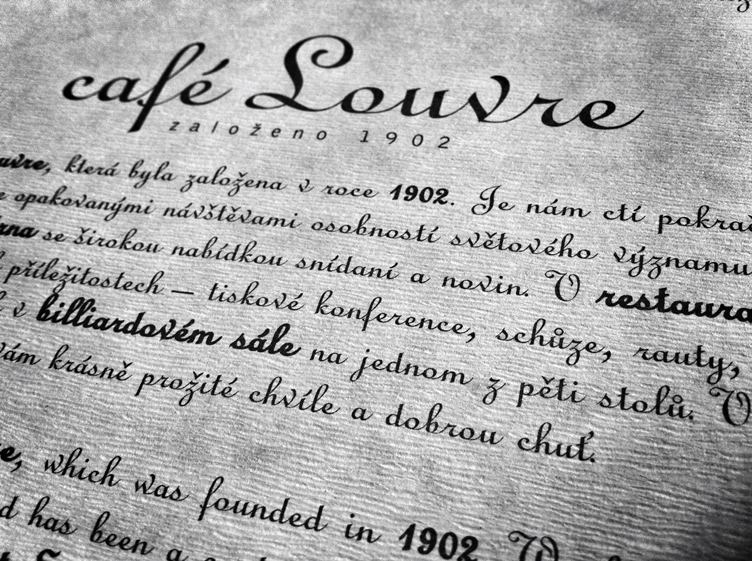 café Louvre
založeno 1902
která byla založena v roce 1902. Je nám ctí
opakovanými návštěvami osobností světového významu
se širokou nabídkou snídaní a novin. V
příležitostech — tiskové konference, schůze, rauty,
v billiardovém sále na jednom z pěti stolů. V
krásně prožité chvíle a dobrou chuť.
which was founded in 1902
has been a